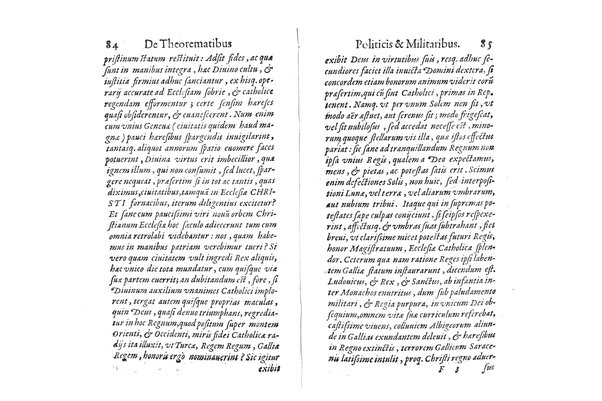 84 De Theorematibus
pristinum statum restituit: Adsit fides, ac quæ
sunt in manibus integra, hac Divino cultu, &
iustitia firmius adhuc sanciantur, ex hisq. ope-
rarij accurate ad Ecclesiam sobrie, & catholice
regendam efformentur; certe sensim hæreses
quasi obsiderentur, & evanescerent. Num enim
cum vnius Geneuæ (ciuitatis quidem haud ma-
gnæ) pauci hæresibus spargendis inuigilarint,
tantasq. aliquot annorum spatio euomere faces
potuerint, Diuina virtus erit imbecillior, quæ
ignem illum, qui non consumit, sed lucet, spar-
gere nequeat, præsertim si in tot ac tantis, quas
diximus, ciuitatibus, tamquã in Ecclesiæ CHRI-
STI fornacibus, iterum diligentius excitetur?
Et sane cum paucissimi viri nouũ orbem Chri-
stianum Ecclesiæ hoc sæculo adiecerunt tum cum
omnia retrolabi videbantur: nos, quam habe-
mus in manibus patriam verebimur tueri? Si
vero quam ciuitatem vult ingredi Rex aliquis,
hac vnico die tota mundatur, cum quisque via
sua partem euerrit; an dubitandum est, fore, si
Diuinum auxilium vnanimes Catholici implo-
rent, tergas autem quisque proprias maculas,
quin Deus, quasi denuo triumphans, regredia-
tur in hoc Regnum, quod positum super montem
Orienti, & Occidenti, miris fidei Catholicæ ra-
dijs ita illuxit, vt Turcæ, Regem Regum, Galliæ
Regem, honoris ergò nominauerint? Sic igitur
exibit
Politicis & Militaribus. 85
exibit Deus in virtutibus suis, resq. adhuc se-
cundiores faciet illa inuicta Domini dextera. si
concordem etiam bonorum animum viderit eorũ
præsertim, qui cũ sint Catholici, primas in Rep.
tenent. Namq. vt per vnum Solem nen sit, vt
modo aër æstuet, aut serenus sit; modo frigescat,
vel sit nubilosus, sed accedat necesse est, mino-
rum quoque stellarum vis illa, quæ istos effectus
pariat: sic sane ad tranquillandum Regnum non
ipsa vnius Regis, qualem a Deo expectamus,
mens, & pietas, ac potestas satis erit. Scimus
enim defectiones Solis, non huic, sed interposi-
tioni Lunæ, vel terræ, vel aliarum vmbrarum,
aut nubium tribui. Itaque qui in supremas po-
testates sæpe culpas conijciunt, si seipsos respexe-
rint, affectusq. & vmbras suas subtrahant, fiet
breui, vt clarissime micet potestas futuri Regis,
honor Magistratuum, Ecclesiæ Catholicæ splen-
dor. Ceterum qua nam ratione Reges ipsi laben-
tem Galliæ statum instaurarunt, dicendum est.
Ludouicus, & Rex, & Sanctus, ab infantia in-
ter Monachos enutritus, dum sub paludamento
militari, & Regia purpura, in vnicum Dei ob-
sequium, omnem vitæ suæ curriculum referebat,
castissime viuens, colluuiem Albigeorum aliun-
de in Gallias exundantem delens, & hæresibus
in Regno extinctis, terrorem Gallicum Sarace-
nis latissime intulit, proq. Christi regno aduer-
F 3 sus